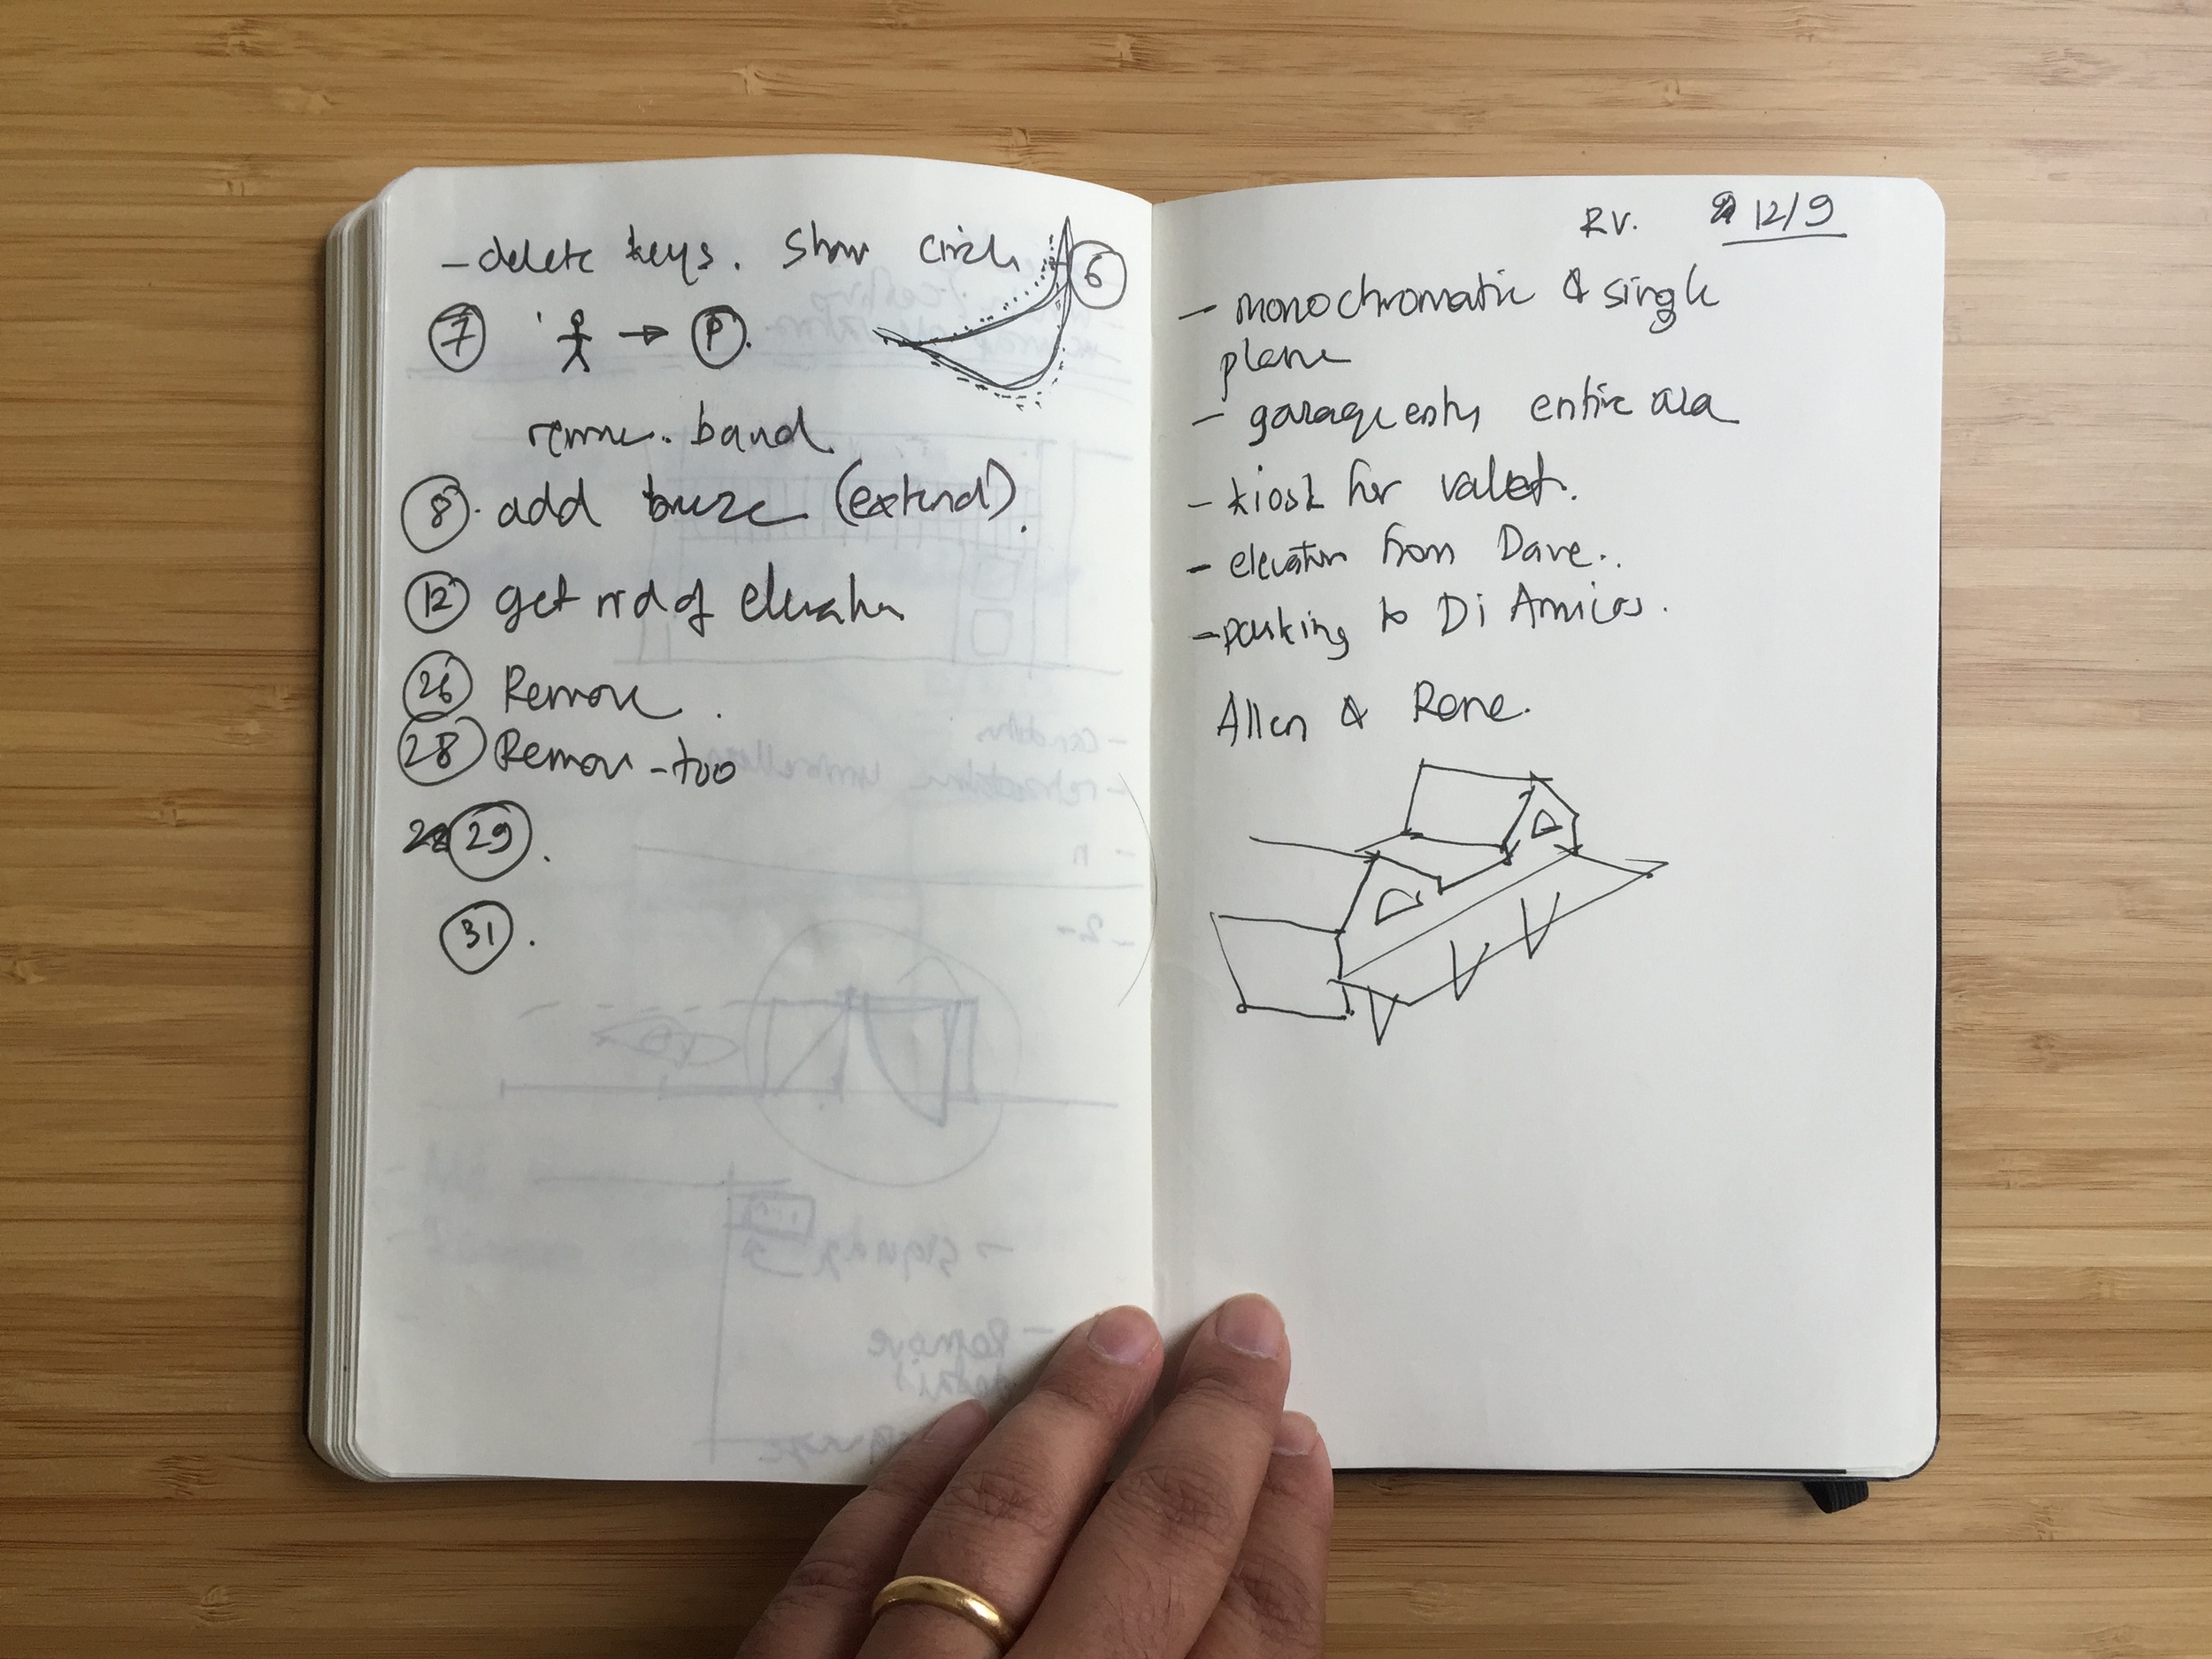 - delete keys. Show circle 6
7 → P.
remove. band
8. add breeze (extend).
12 get rid of elevator
26 Remove.
28 Remove - too
29.
31.
RV. 12/9
- monochromatic & single
plane
- garage entry entire area
- kiosk for valet.
- elevation from Dave..
- parking to Di Amicos.
Allen & Rene.